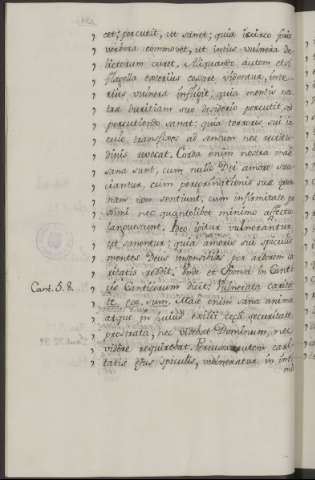 cet; percutit, ut sanet; quia idcirco foris
verbera commovet, ut intus vulnera de-
lictorum curet. Aliquando autem etsi
flagella exterius cessare videantur, inte-
rius vulnera infligit, quia mentis nos-
træ duritiam suo desiderio percutit, sed
percutiendo sanat: quia terroris sui ia-
culo transfixos ad sensum nos rectitu-
dinis revocat. Corda enim nostra malè
sana sunt, cum nullo Dei amore sau-
ciantur, cum peregrinationis suæ ærum-
nam non sentiunt, cum infirmitate pro-
ximi nec quantolibet minimo affectu
languescunt. Sed igitur vulnerantur,
ut sanentur; quia amoris sui spiculis
mentes Deus insensibiles per ardorem ca-
ritatis reddit. Unde et Sponsa in Canti-
Cant. 5. 8. cis Canticorum dicit: Vulnerata carita-
te ego sum. Malè enim sana anima
atque in huius exilii cæca securitate
prostrata, nec videbat Dominum, nec
videre requirebat. Percussa autem cari-
tatis eius spiculis, vulneratur in inti-